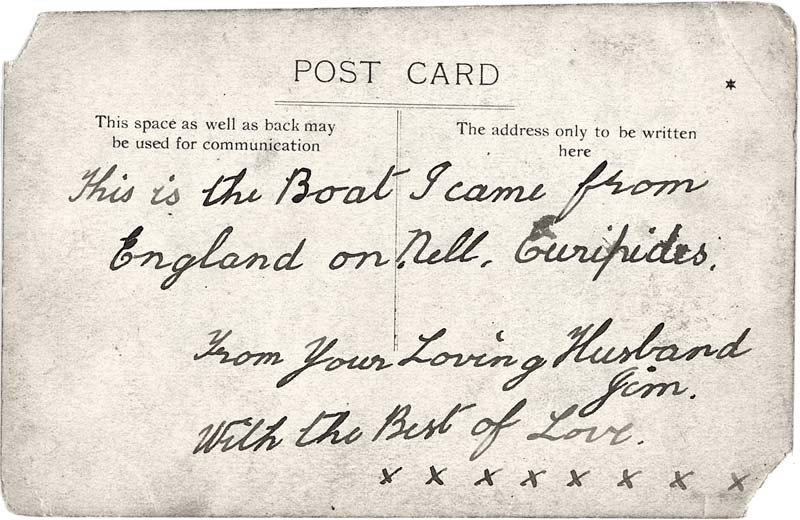 POST CARD
This space as well as back may
be used for communication
The address only to be written
here
This is the Boat I came from
England on Nell. Euripides.
From Your Loving Husband
Jim.
With the Best of Love.
x x x x x x x x